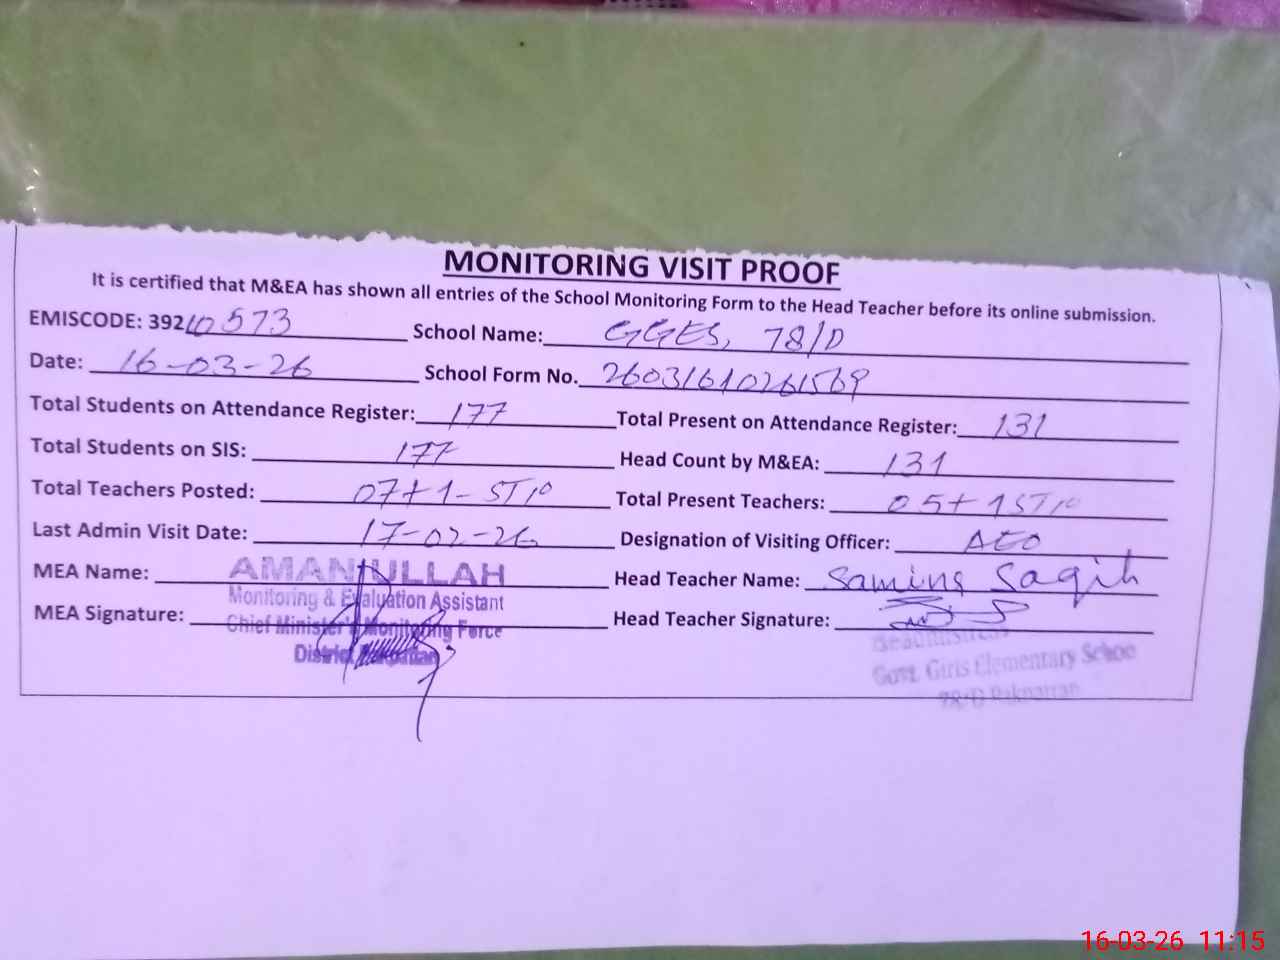 MONITORING VISIT PROOF
It is certified that M&EA has shown all entries of the School Monitoring Form to the Head Teacher before its online submission.
EMISCODE: 39210573 School Name: GGES, 78/D
Date: 16-03-26 School Form No. 26031610261569
Total Students on Attendance Register: 177 Total Present on Attendance Register: 131
Total Students on SIS: 177 Head Count by M&EA: 131
Total Teachers Posted: 07+1-ST Total Present Teachers: 05+1 ST
Last Admin Visit Date: 17-02-26 Designation of Visiting Officer: AEO
MEA Name: AMANULLAH Head Teacher Name:
Monitoring & Evaluation Assistant
MEA Signature: Head Teacher Signature:
Chief Minister's Monitoring Force
District Pakpattan
Headmistress
Govt. Girls Elementary School
78/D Pakpattan
16-03-26 11:15